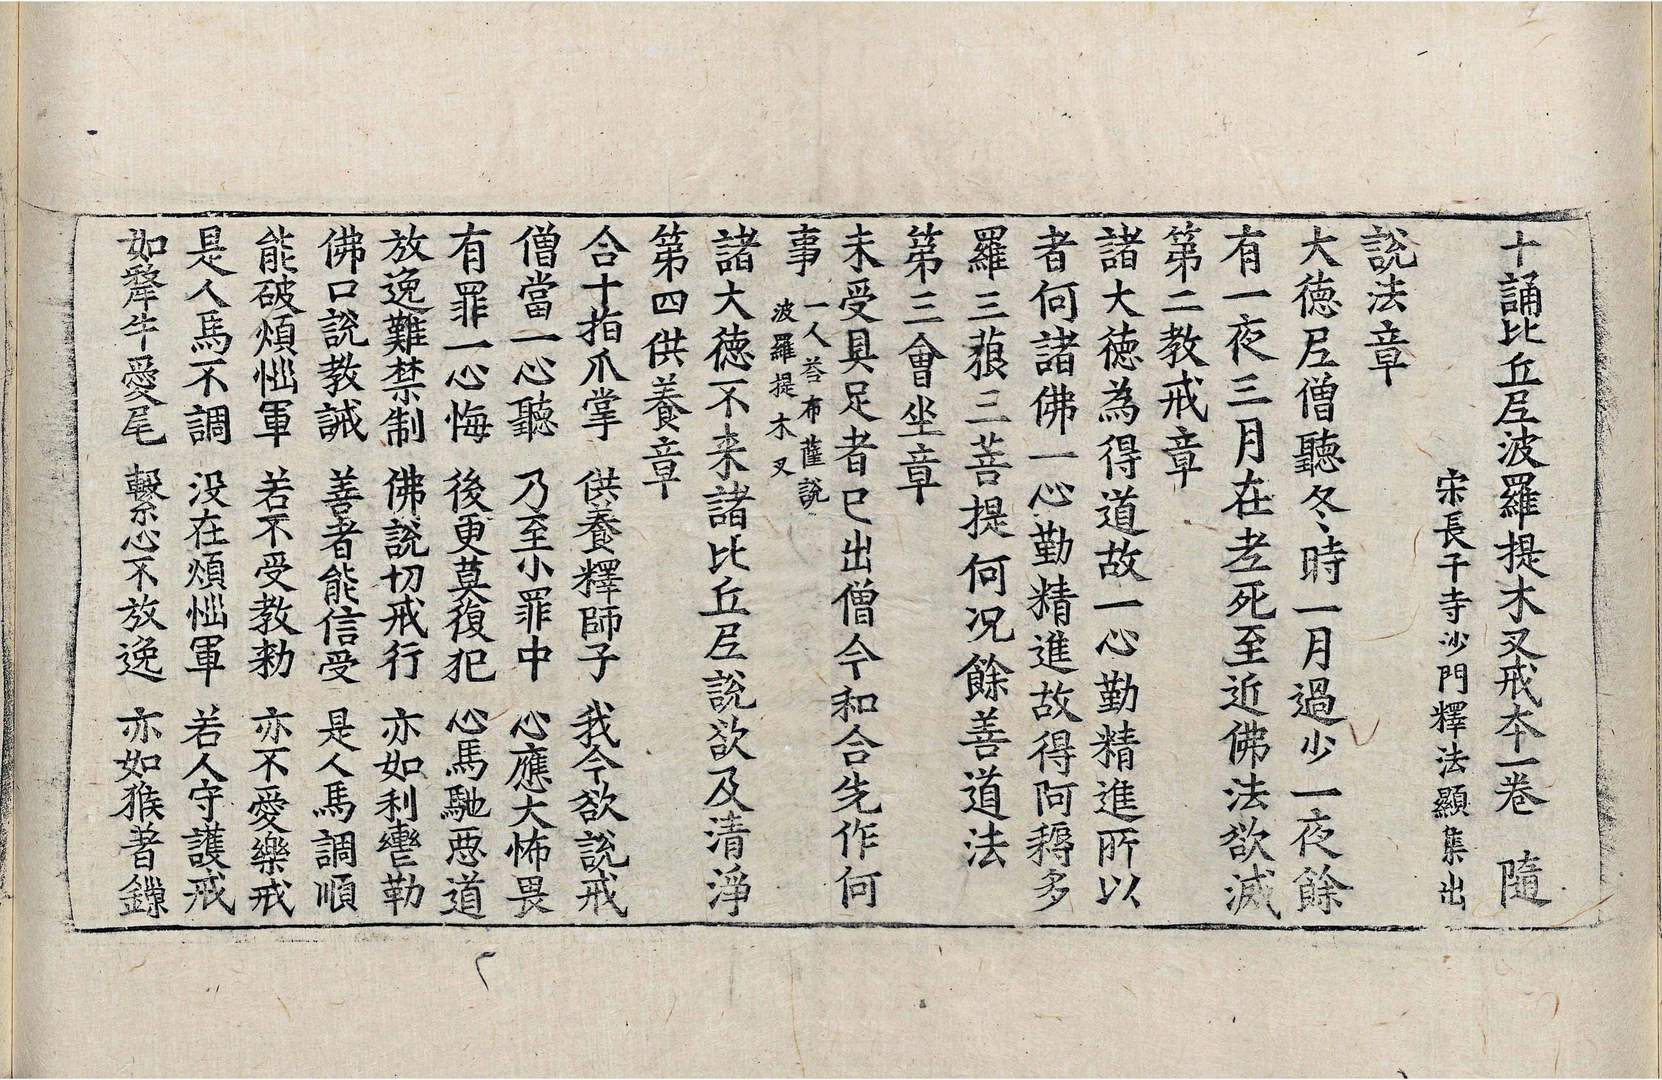 十誦比丘尼波羅提木叉戒本一卷　隨
宋長干寺沙門釋法顯集出
說法章
大德尼僧聽冬時一月過少一夜餘
有一夜三月在老死至近佛法欲滅
第二教戒章
諸大德為得道故一心勤精進所以
者何諸佛一心勤精進故得阿耨多
羅三藐三菩提何况餘善道法
第三會坐章
未受具足者已出僧今和合先作何
事　一人荅布薩說
波羅提木叉
諸大德不来諸比丘尼說欲及清淨
第四供養章
合十指爪掌　供養釋師子　我今欲說戒
僧當一心聽　乃至小罪中　心應大怖畏
有罪一心悔　後更莫復犯　心馬馳惡道
放逸難禁制　佛說切戒行　亦如利轡勒
佛口說教誡　善者能信受　是人馬調順
能破煩惱軍　若不受教勑　亦不愛樂戒
是人馬不調　没在煩惱軍　若人守護戒
如犛牛愛尾　繫心不放逸　亦如猴著鏁